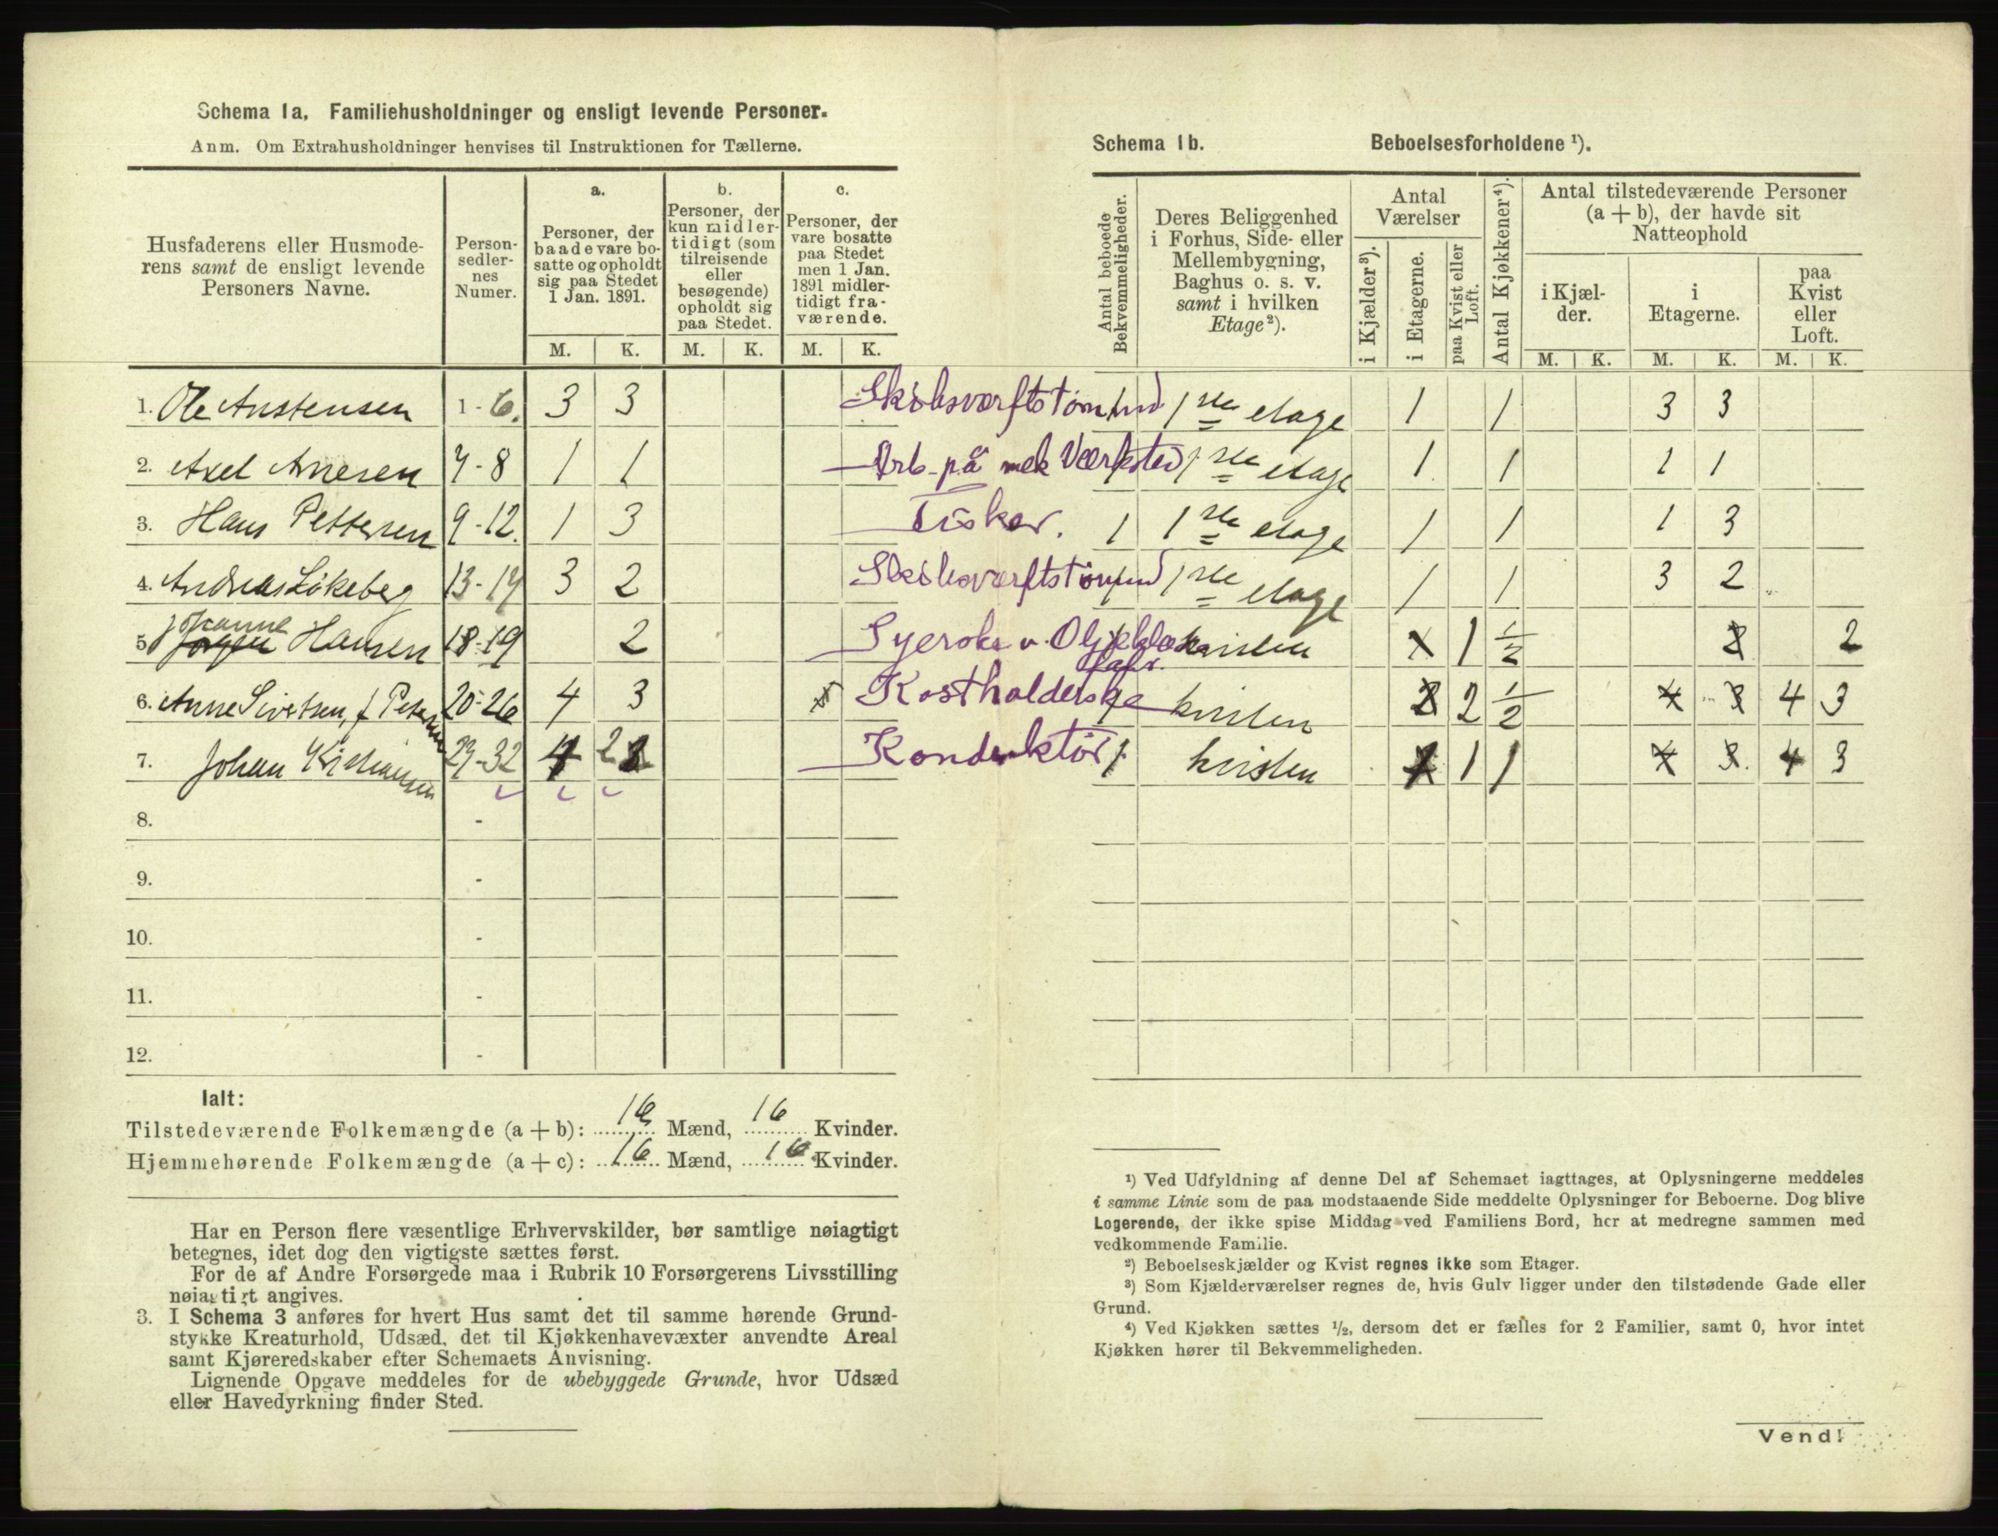 Schema 1a. Familiehusholdninger og ensligt levende Personer.
Anm. Om Extrahusholdninger henvises til Instruktionen for Tællerne.
Husfaderens eller Husmoderens samt de ensligt levende Personers Navne.
Personsedlernes Numer.
a. Personer, der baade vare bosatte og opholdt sig paa Stedet 1 Jan. 1891.
b. Personer, der kun midlertidigt (som tilreisende eller besøgende) opholdt sig paa Stedet.
c. Personer, der vare bosatte paa Stedet men 1 Jan. 1891 midlertidigt fraværende.
M. K. M. K. M. K.
1. Ole Austensen 1-6. 3 3
2. Axel Anesen 7-8 1 1
3. Hans Pettersen 9-12. 1 3
4. Andreas Løkeberg 13-17 3 2
5 Johanne Hansen 18-19 2
6. Anne Sivertsen, f Petersen 20-26 4 3
7. Johan Kristiansen 27-32 4 2
8. -
9. -
10. -
11. -
12. -
Ialt:
Tilstedeværende Folkemængde (a + b): 16 Mænd, 16 Kvinder.
Hjemmehørende Folkemængde (a + c): 16 Mænd, 16 Kvinder.
Har en Person flere væsentlige Erhvervskilder, bør samtlige nøiagtigt
betegnes, idet dog den vigtigste sættes først.
For de af Andre Forsørgede maa i Rubrik 10 Forsørgerens Livsstilling
nøiagtigt angives.
3. I Schema 3 anføres for hvert Hus samt det til samme hørende Grund-
stykke Kreaturhold, Udsæd, det til Kjøkkenhavevæxter anvendte Areal
samt Kjøreredskaber efter Schemaets Anvisning.
Lignende Opgave meddeles for de ubebyggede Grunde, hvor Udsæd
eller Havedyrkning finder Sted.
Schema 1b. Beboelsesforholdene ¹).
Antal beboede Bekvemmeligheder.
Deres Beliggenhed i Forhus, Side- eller Mellembygning, Baghus o. s. v. samt i hvilken Etage²).
Antal Værelser
i Kjælder³).
i Etagerne.
paa Kvist eller Loft.
Antal Kjøkkener⁴).
Antal tilstedeværende Personer (a + b), der havde sit Natteophold
i Kjælder.
i Etagerne.
paa Kvist eller Loft.
M. K. M. K. M. K.
Skibsværftstømmd 1 1ste etage 1 1 3 3
Arb. på mek Værksted 1ste etage 1 1 1 1
Tisker. 1 1ste etage 1 1 1 3
Skibsværftstømmd 1ste etage 1 1 3 2
Syerske v. Oljeklæ fabr. kvisten 1 1 1/2 2 2
Kostholderske 1 kvisten 2 2 1/2 4 3 4 3
Konduktør 1 kvisten 1 1 1 4 3 4 3
¹) Ved Udfyldning af denne Del af Schemaet iagttages, at Oplysningerne meddeles
i samme Linie som de paa modstaaende Side meddelte Oplysninger for Beboerne. Dog blive
Logerende, der ikke spise Middag ved Familiens Bord, her at medregne sammen med
vedkommende Familie.
²) Beboelseskjælder og Kvist regnes ikke som Etager.
³) Som Kjælderværelser regnes de, hvis Gulv ligger under den tilstødende Gade eller
Grund.
⁴) Ved Kjøkken sættes ½, dersom det er fælles for 2 Familier, samt 0, hvor intet
Kjøkken hører til Bekvemmeligheden.
Vend!